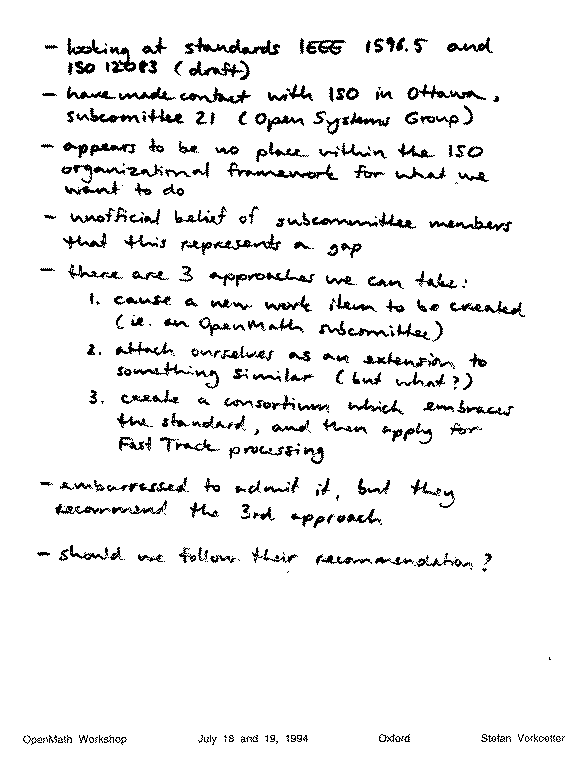 - looking at standards IEEE 1596.5 and
ISO 12083 (draft)
- have made contact with ISO in Ottawa,
subcomittee 21 (Open Systems Group)
- appears to be no place within the ISO
organizational framework for what we
want to do
- unofficial belief of subcommittee members
that this represents a gap
- there are 3 approaches we can take:
1. cause a new work item to be created
(ie. an OpenMath subcomittee)
2. attach ourselves as an extension to
something similar (but what?)
3. create a consortium which embraces
the standard, and then apply for
Fast Track processing
- embarrassed to admit it, but they
recommend the 3rd approach
- should we follow their recommendation?
OpenMath Workshop July 18 and 19, 1994 Oxford Stefan Vorkoetter